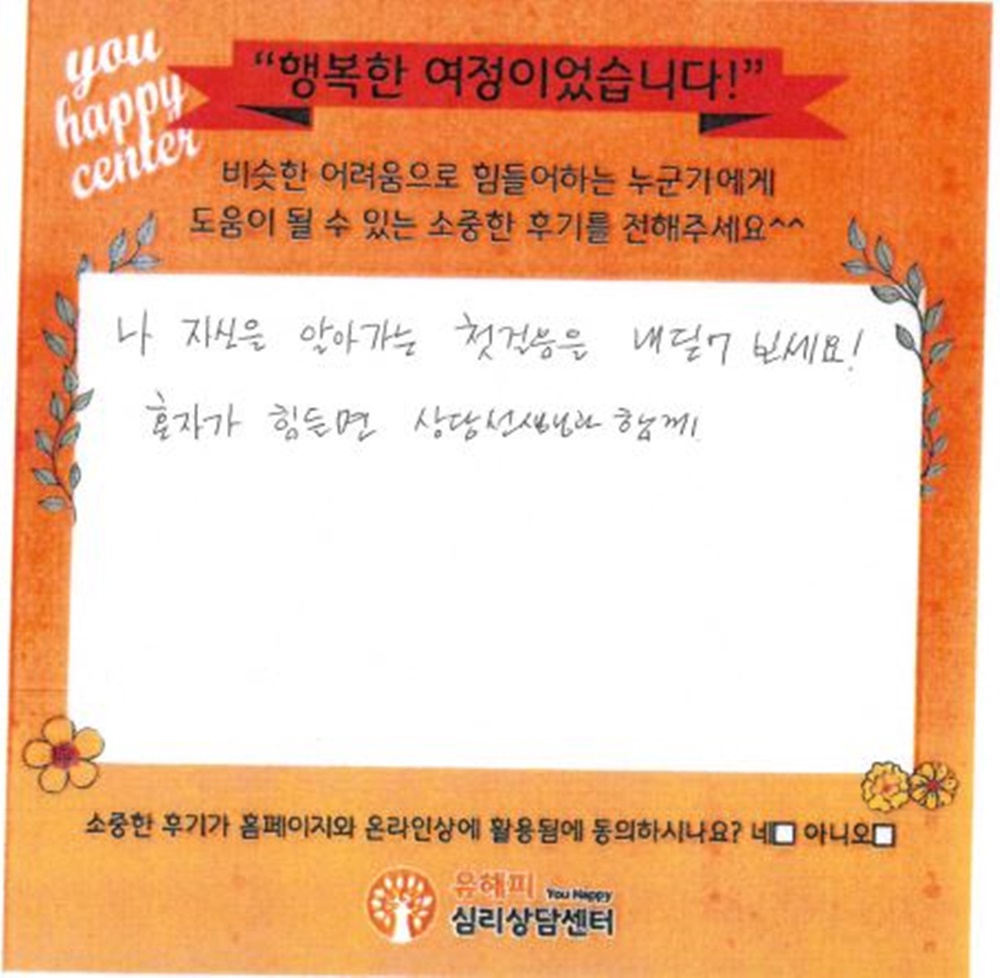 you
happy
center
“행복한 여정이었습니다!”
비슷한 어려움으로 힘들어하는 누군가에게
도움이 될 수 있는 소중한 후기를 전해주세요^^
나 자신을 알아가는 첫걸음을 내딛어 보세요!
혼자가 힘들면 상담선생님과 함께!
소중한 후기가 홈페이지와 온라인상에 활용됨에 동의하시나요? 네□ 아니오□
유해피 You Happy
심리상담센터